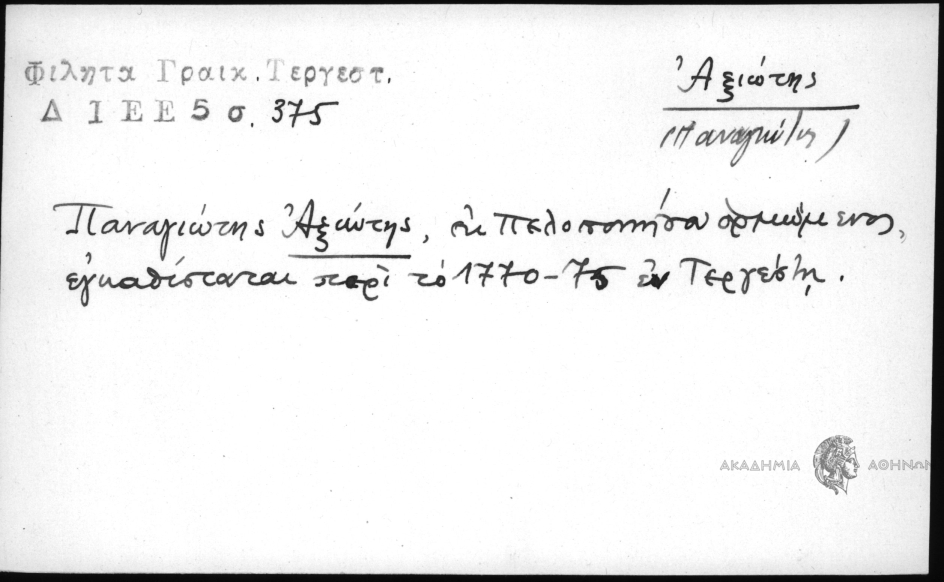 Φιλητα Γραικ. Τεργεστ.
Δ Ι Ε Ε 5 σ. 375
Ἀξιώτης
(Παναγιώτης)
Παναγιώτης Ἀξιώτης, ἐκ Πελοποννήσου ὁρμώμενος,
ἐγκαθίσταται περὶ τὸ 1770-75 ἐν Τεργέστῃ.
ΑΚΑΔΗΜΙΑ ΑΘΗΝΩΝ